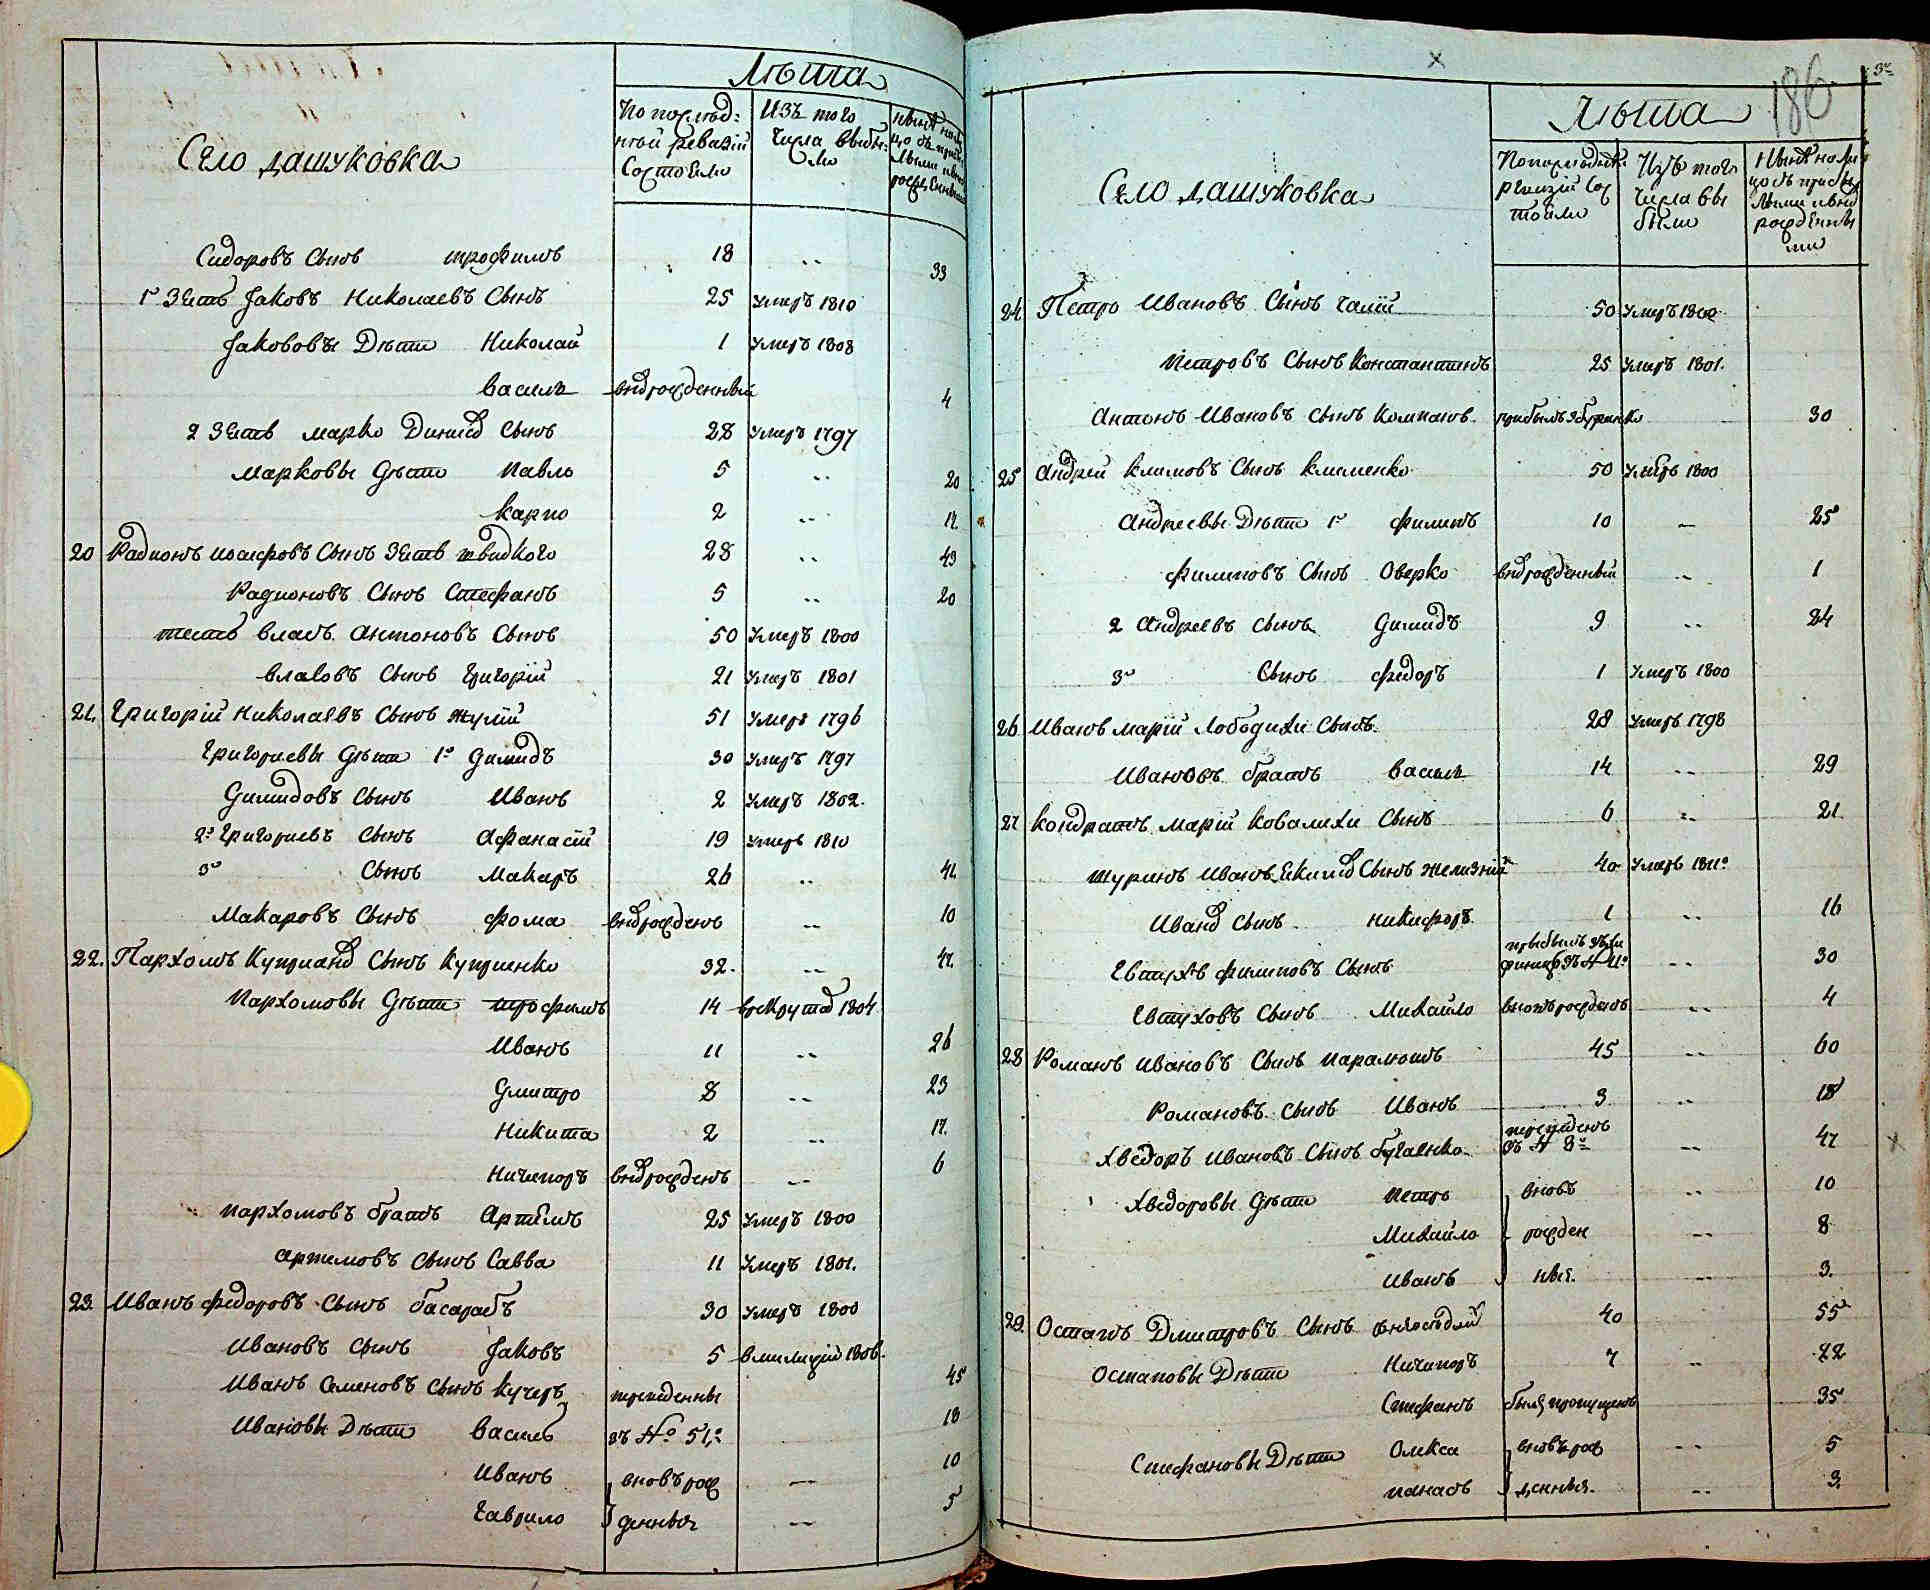 Лѣта
Село Дашуковка
По послѣд:
ней ревизіи
состояло
Изъ того
числа выбы:
ло
Сидоровъ Сынъ Трофимъ 18 .. 33
1й Зять Яковъ Николаевъ Сынъ 25 умеръ 1810
Якововы Дѣти Николай 1 умеръ 1808
Василь вновьрожденный 4
2 Зять Марко Динисов Сынъ 28 умеръ 1797
Марковы Дѣти Павло 5 .. 20
Карпо 2 .. 17.
20 Радионъ Иосифовъ Сынъ Зять Швидкого 28 .. 43
Радионовъ Сынъ Стефанъ 5 .. 20
тесть Власъ Антоновъ Сынъ 50 умеръ 1800
Власовъ Сынъ Григорій 21 умеръ 1801
21. Григорій Николаевъ Сынъ Жулій 51 умеръ 1796
Григориевы Дѣти 1й Демидъ 30 умеръ 1797
Демидовъ Сынъ Иванъ 2 умеръ 1802.
2й Григориевъ Сынъ Афанасій 19 умеръ 1810
3й Сынъ Макаръ 26 .. 41.
Макаровъ Сынъ Фома вновьрожденъ .. 10
22. Пархомъ Куприянов Сынъ Куприенко 32. .. 47.
Пархомовы Дѣти Трофимъ 14 врекруты 1804
Иванъ 11 .. 26
Дмитро 8 .. 23
Никита 2 .. 17.
Ничипоръ вновьрожденъ .. 6
Пархомовъ братъ Артемъ 25 умеръ 1800
Артемовъ Сынъ Савва 11 умеръ 1801.
23. Иванъ Федоровъ Сынъ Басарабъ 30 умеръ 1800
Ивановъ Сынъ Яковъ 5 вмилиціи 1806.
Иванъ Семеновъ Сынъ Кучеръ переведенны 45
Ивановы Дѣти Василь зъ № 51го 18
Иванъ вновърож .. 10
Гаврило денныя .. 5
186
Лѣта
Село Дашуковка
По последней
ревизіи сос
тояло
Изъ того
числа вы
было
Нынѣ на ли
цо съ прибы
лыми и вно
рожденны
ми
24 Петро Ивановъ Сынъ Чалій 50 умеръ 1802
Петровъ Сынъ Константинъ 25 умеръ 1801.
Антонъ Ивановъ Сынъ 30
25 Андрей Климовъ Сынъ Клименко 50 умеръ 1800
Андреевы Дѣти 1й Филипъ 10 .. 25
Филиповъ Сынъ Оверко вновьрожденный .. 1
2 Андреевъ Сынъ Демидъ 9 .. 24
3й Сынъ Федоръ 1 умеръ 1800
26 Иванъ Марій Лободихи Сынъ 28 умеръ 1798
Ивановъ братъ Василь 14 .. 29
27 Кондратъ Марій Ковалихи Сынъ 6 .. 21
Шуринъ Иванъ Екимов Сынъ Желизній 40 умеръ 1811го
Иванов Сынъ Никифоръ 1 .. 16
Евтухъ Филиповъ Сынъ прибылъ .. 30
Евтуховъ Сынъ Михайло вновьрожденъ .. 4
28 Романъ Ивановъ Сынъ Паралюшъ 45 .. 60
Романовъ Сынъ Иванъ 3 .. 18
Хведоръ Ивановъ Сынъ Бугаенко переведенъ зъ № 8го .. 47
Хведоровы Дѣти Петро вновь .. 10
Михайло рожден .. 8
Иванъ ныя. .. 3.
29. Остапъ Дмитровъ Сынъ 40 55
Остаповы Дѣти Ничипоръ 7 .. 22
Стефанъ былъ пропущенъ 35
Стефановы Дѣти Олекса вновьрож .. 5
Панасъ денныя. .. 3.